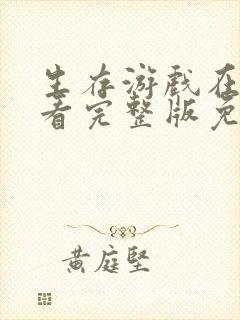 生存游戏在
看完整版免
黄庭坚